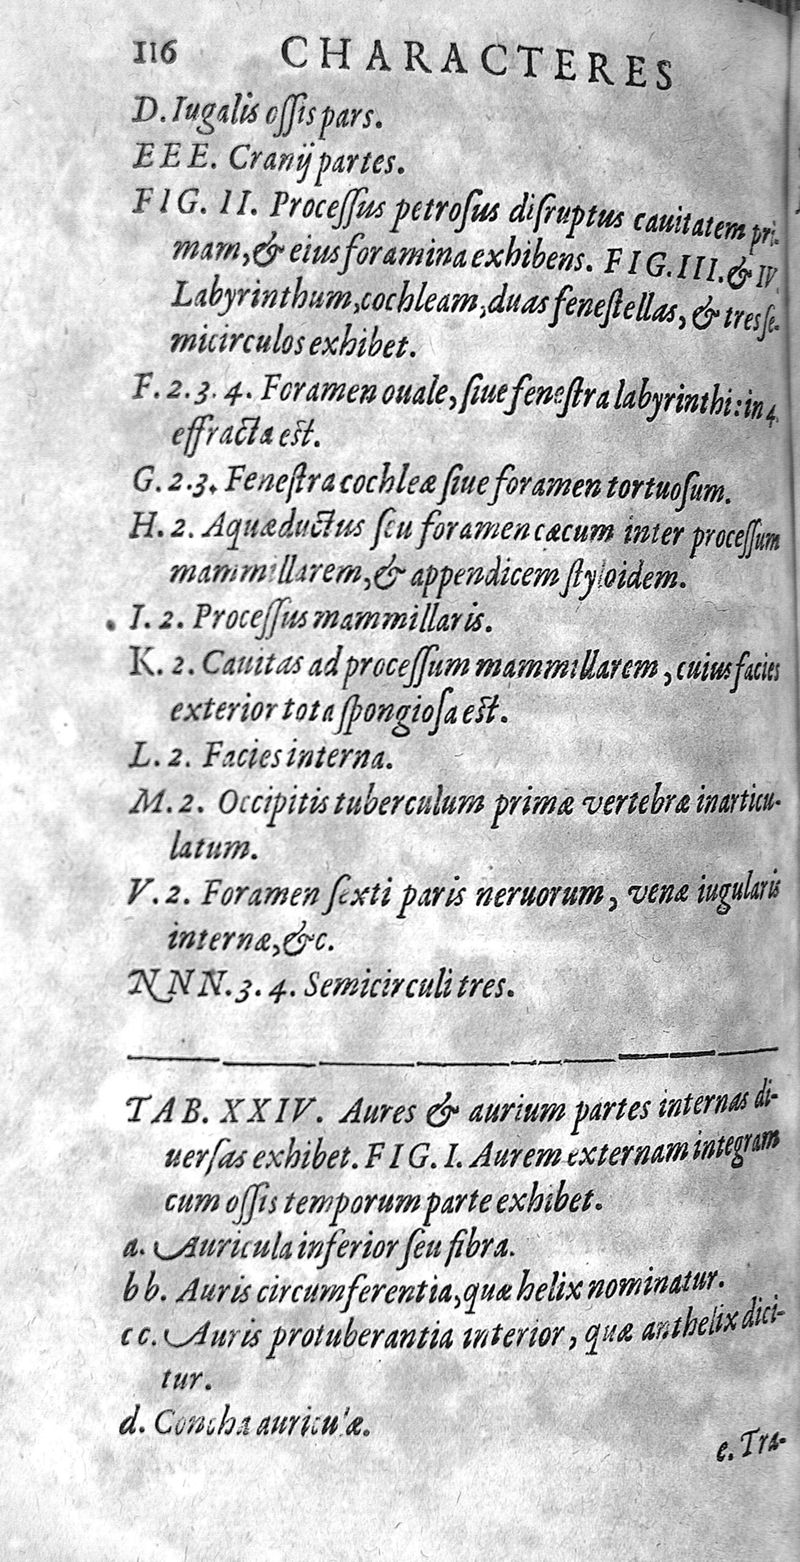 116 CHARACTERES
D. Iugalis oſſis pars.
EEE. Cranij partes.
FIG. II. Proceſſus petroſus diſruptus cauitatem pri-
mam, & eius foramina exhibens. FIG. III. & IV.
Labyrinthum, cochleam, duas feneſtellas, & tres ſe-
micirculos exhibet.
F. 2. 3. 4. Foramen ouale, ſiue feneſtra labyrinthi: in 4.
effracta est.
G. 2. 3. Feneſtra cochleæ ſiue foramen tortuoſum.
H. 2. Aquæductus ſeu foramen cæcum inter proceſſum
mammillarem, & appendicem ſtyloidem.
I. 2. Proceſſus mammillaris.
K. 2. Cauitas ad proceſſum mammillarem, cuius facies
exterior tota ſpongioſa est.
L. 2. Facies interna.
M. 2. Occipitis tuberculum primæ vertebræ inarticu-
latum.
V. 2. Foramen ſexti paris neruorum, venæ iugularis
internæ, &c.
NNN. 3. 4. Semicirculi tres.
TAB. XXIV. Aures & aurium partes internas di-
uerſas exhibet. FIG. I. Aurem externam integram
cum oſſis temporum parte exhibet.
a. Auricula inferior ſeu fibra.
bb. Auris circumferentia, quæ helix nominatur.
cc. Auris protuberantia interior, quæ anthelix dici-
tur.
d. Concha auriculæ.
e. Tra-